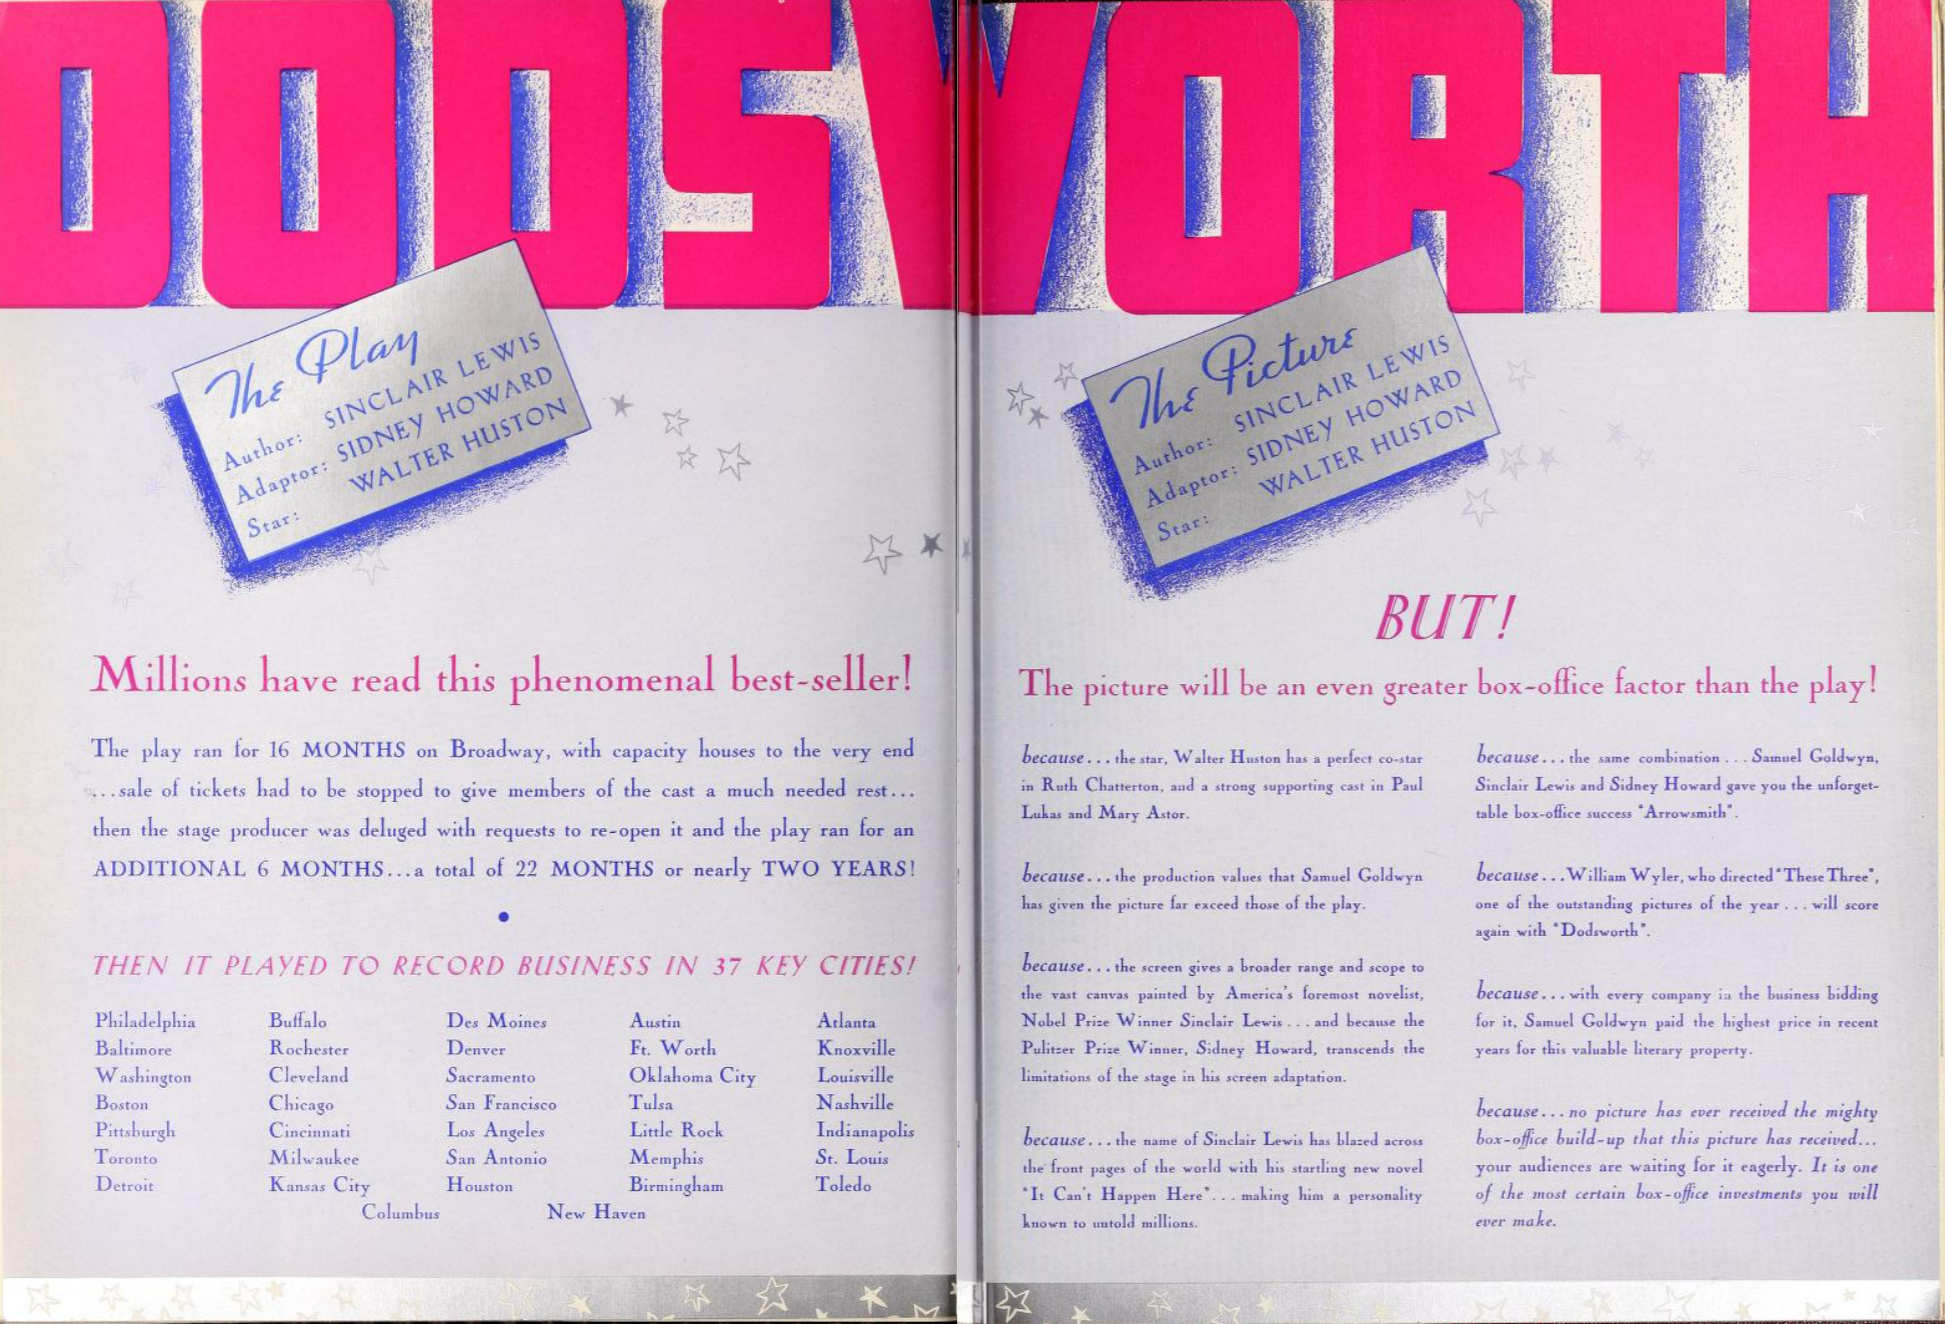 DODSWORTH
The Play
Author: SINCLAIR LEWIS
Adaptor: SIDNEY HOWARD
Star: WALTER HUSTON
Millions have read this phenomenal best-seller!
The play ran for 16 MONTHS on Broadway, with capacity houses to the very end
...sale of tickets had to be stopped to give members of the cast a much needed rest...
then the stage producer was deluged with requests to re-open it and the play ran for an
ADDITIONAL 6 MONTHS...a total of 22 MONTHS or nearly TWO YEARS!
THEN IT PLAYED TO RECORD BUSINESS IN 37 KEY CITIES!
Philadelphia
Baltimore
Washington
Boston
Pittsburgh
Toronto
Detroit
Buffalo
Rochester
Cleveland
Chicago
Cincinnati
Milwaukee
Kansas City
Des Moines
Denver
Sacramento
San Francisco
Los Angeles
San Antonio
Houston
Austin
Ft. Worth
Oklahoma City
Tulsa
Little Rock
Memphis
Birmingham
Atlanta
Knoxville
Louisville
Nashville
Indianapolis
St. Louis
Toledo
Columbus New Haven
The Picture
Author: SINCLAIR LEWIS
Adaptor: SIDNEY HOWARD
Star: WALTER HUSTON
BUT!
The picture will be an even greater box-office factor than the play!
because...the star, Walter Huston has a perfect co-star
in Ruth Chatterton, and a strong supporting cast in Paul
Lukas and Mary Astor.
because...the production values that Samuel Goldwyn
has given the picture far exceed those of the play.
because...the screen gives a broader range and scope to
the vast canvas painted by America's foremost novelist,
Nobel Prize Winner Sinclair Lewis...and because the
Pulitzer Prize Winner, Sidney Howard, transcends the
limitations of the stage in his screen adaptation.
because...the name of Sinclair Lewis has blazed across
the front pages of the world with his startling new novel
"It Can't Happen Here"...making him a personality
known to untold millions.
because...the same combination...Samuel Goldwyn,
Sinclair Lewis and Sidney Howard gave you the unforget-
table box-office success "Arrowsmith".
because...William Wyler, who directed "These Three",
one of the outstanding pictures of the year...will score
again with "Dodsworth".
because...with every company in the business bidding
for it, Samuel Goldwyn paid the highest price in recent
years for this valuable literary property.
because...no picture has ever received the mighty
box-office build-up that this picture has received...
your audiences are waiting for it eagerly. It is one
of the most certain box-office investments you will
ever make.